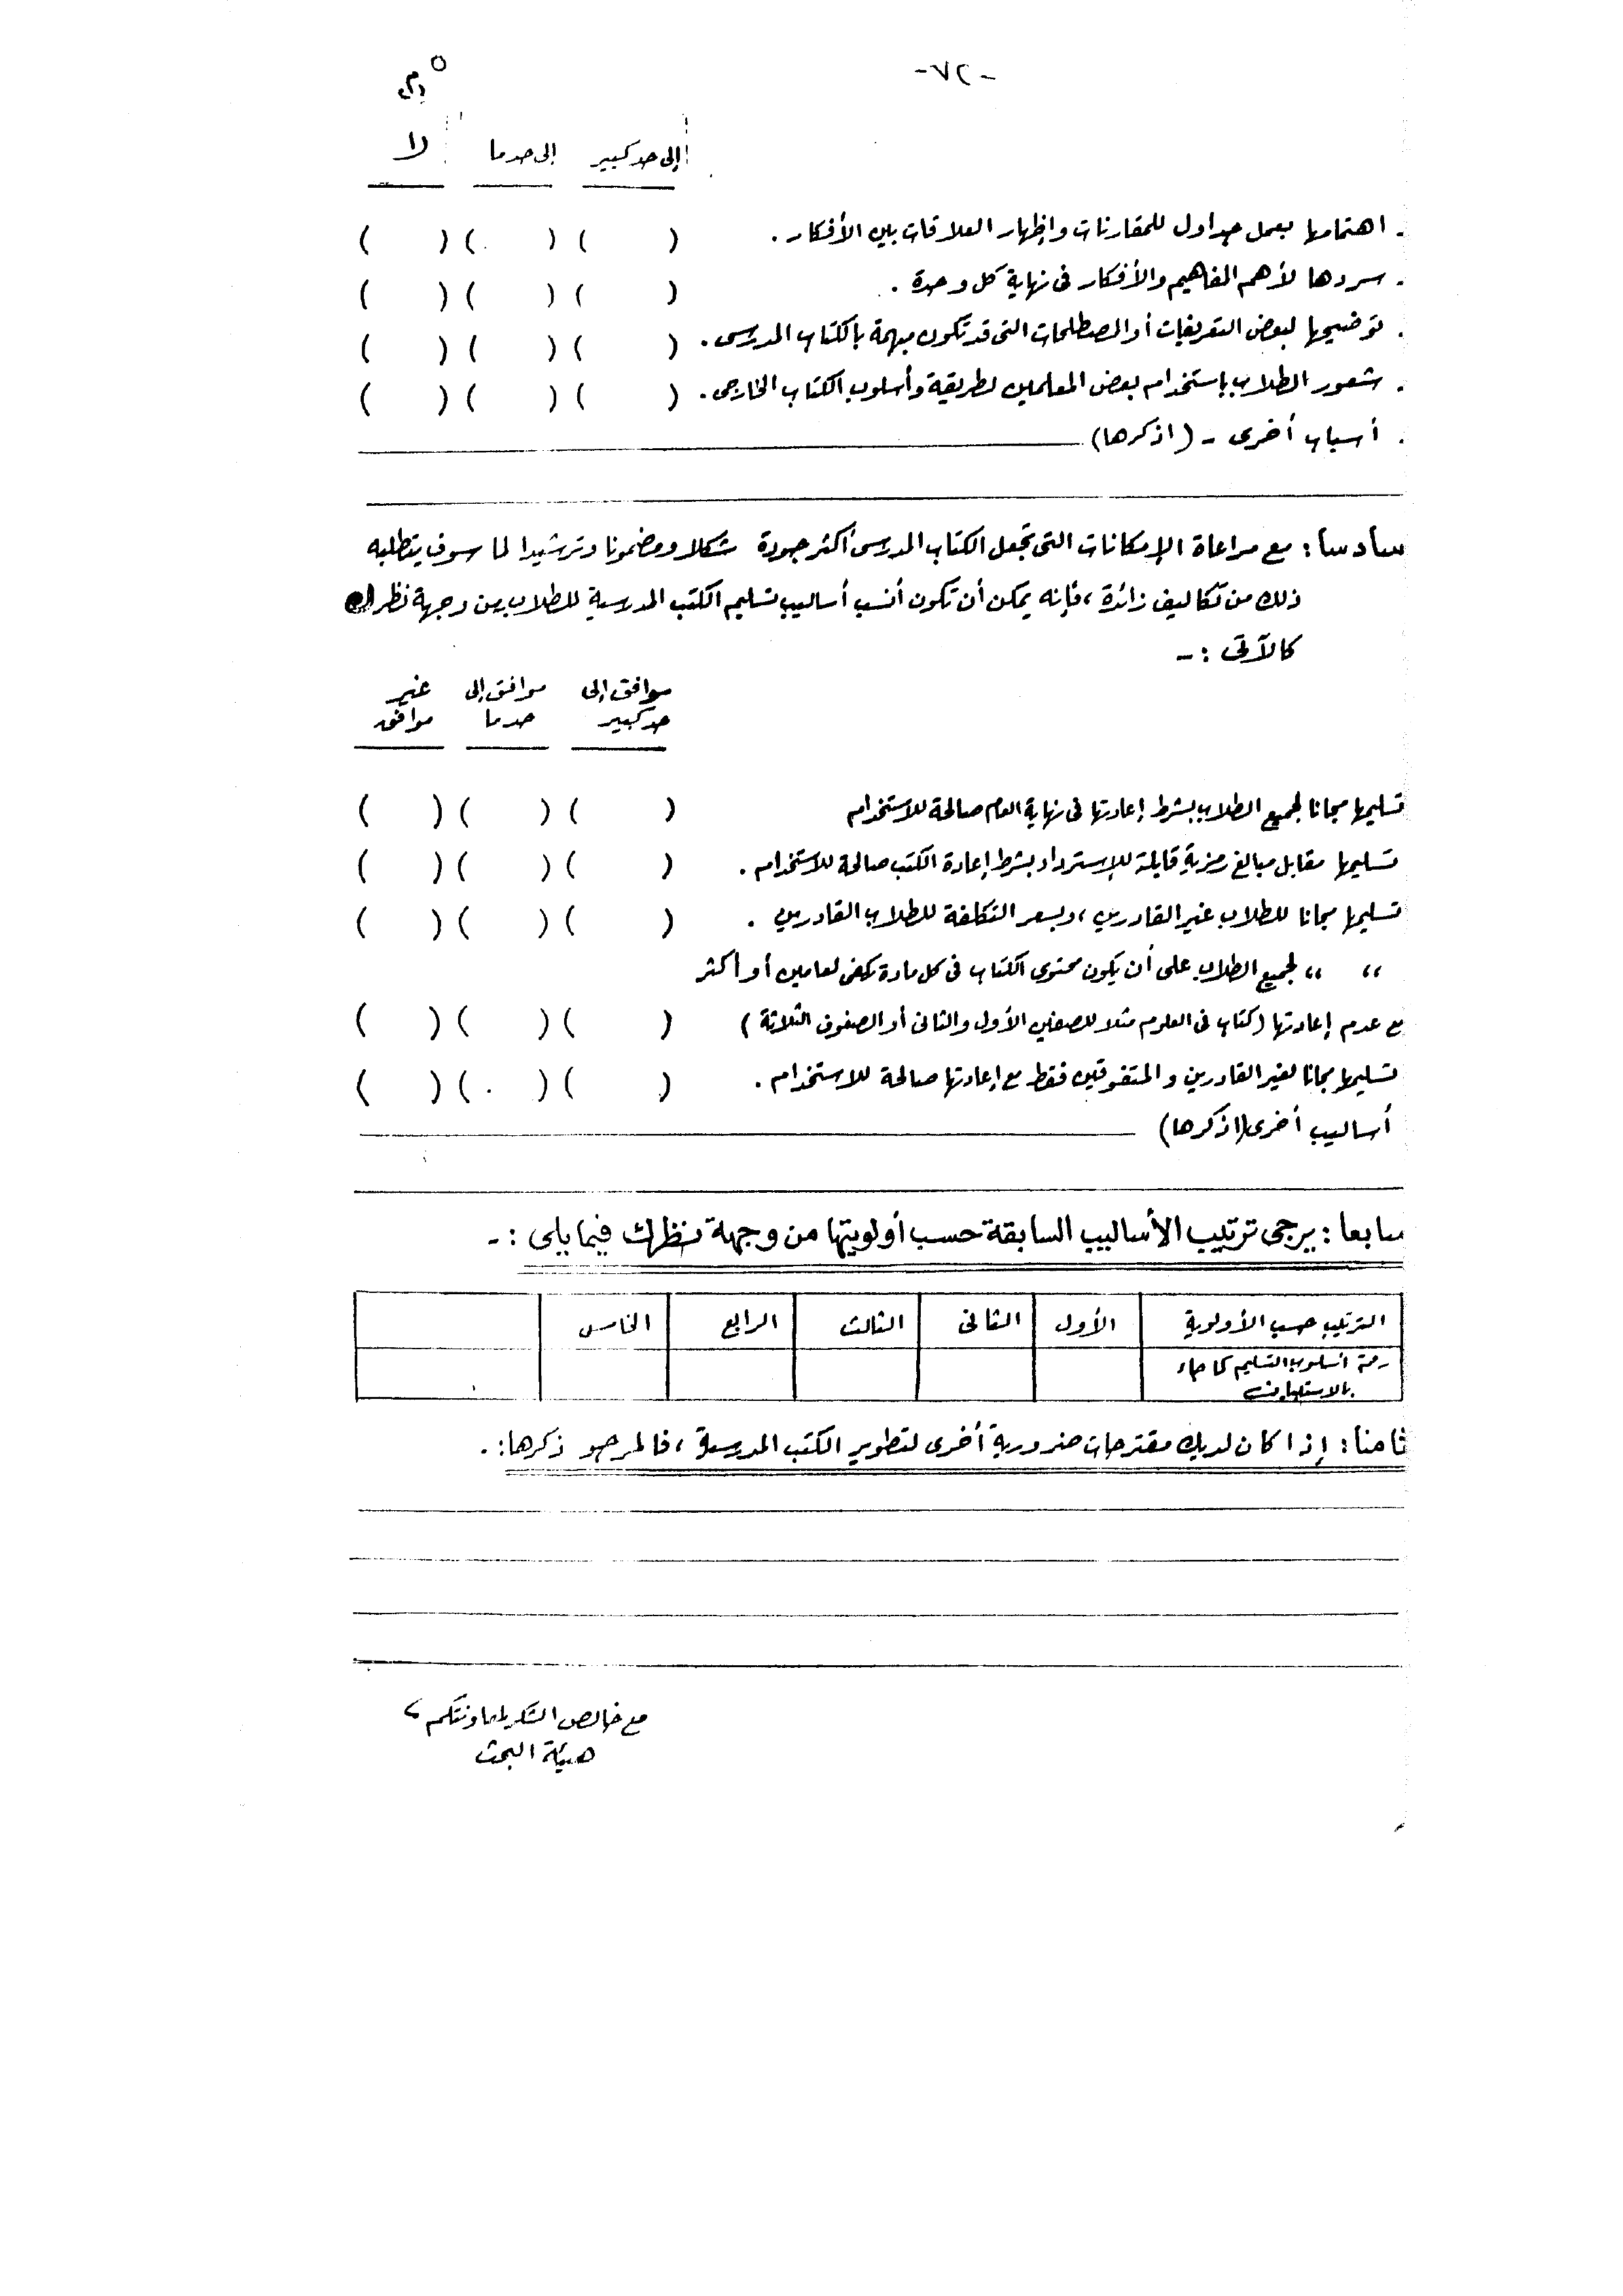 -٧٢-
٥
إلى حد كبير   إلى حد ما   لا
. اهتمامها بعمل جداول للمقارنات وإظهار العلاقات بين الأفكار . (   ) (   ) (   )
. سردها لأهم المفاهيم والأفكار فى نهاية كل وحدة . (   ) (   ) (   )
. توضيحها لبعض التعريفات أو المصطلحات التى قد تكون مبهمة بالكتاب المدرسى . (   ) (   ) (   )
. شعور الطلاب باستخدام بعض المعلمين لطريقة وأسلوب الكتاب الخارجى . (   ) (   ) (   )
. أسباب أخرى - (اذكرها)
سادسا : مع مراعاة الإمكانات التى تجعل الكتاب المدرسى أكثر جودة شكلا ومضمونا وترشيدا لما سوف يتطلبه
ذلك من تكاليف زائدة ، فإنه يمكن أن تكون أنسب أساليب تسليم الكتب المدرسية للطلاب من وجهة نظرك
كالآتى : -
موافق إلى   موافق إلى   غير
حد كبير   حد ما   موافق
تسليمها مجانا لجميع الطلاب بشرط إعادتها فى نهاية العام صالحة للاستخدام (   ) (   ) (   )
تسليمها مقابل مبالغ رمزية قابلة للإسترداد بشرط إعادة الكتب صالحة للاستخدام . (   ) (   ) (   )
تسليمها مجانا للطلاب غير القادرين ، وبسعر التكلفة للطلاب القادرين . (   ) (   ) (   )
،، ،، لجميع الطلاب على أن يكون محتوى الكتاب فى كل مادة يكفى لعامين أو أكثر
مع عدم إعادتها (كتاب فى العلوم مثلا للصفين الأول والثانى أو الصفوف الثلاثة ) (   ) (   ) (   )
تسليمها مجانا لغير القادرين و المتفوقين فقط مع إعادتها صالحة للاستخدام . (   ) (   ) (   )
أساليب أخرى (اذكرها)
سابعا : يرجى ترتيب الأساليب السابقة حسب أولويتها من وجهة نظرك فيما يلى : -
الترتيب حسب الأولوية   الأول   الثانى   الثالث   الرابع   الخامس
أسلوب التسليم كما جاء
ثامنا : إذا كان لديك مقترحات ضرورية أخرى لتطوير الكتب المدرسية ، فالمرجو ذكرها : .
مع خالص الشكر لمعاونتكم ،
هيئة البحث